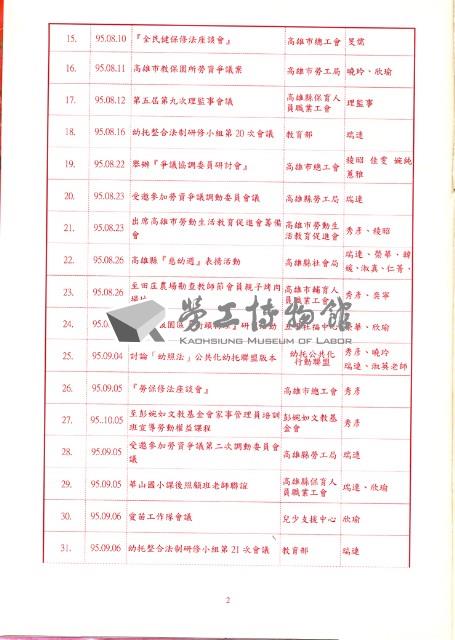 15. 95.08.10 『全民健保修法座談會』 高雄市總工會 旻儒
16. 95.08.11 高雄市教保園所勞資爭議案 高雄市勞工局 曉玲、欣瑜
17. 95.08.12 第五屆第九次理監事會議 高雄縣保育人員職業工會 理監事
18. 95.08.16 幼托整合法制研修小組第20次會議 教育部 瑞達
19. 95.08.22 舉辦『爭議協調委員研討會』 高雄市總工會 稜昭 佳雯 婉純 蕙雅
20. 95.08.23 受邀參加勞資爭議調動委員會議 高雄縣勞工局 瑞達
21. 95.08.23 出席高雄市勞動生活教育促進會籌備會 高雄市勞動生活教育促進會 秀彥、稜昭
22. 95.08.26 高雄縣『慈幼週』表揚活動 高雄縣社會局 瑞達、榮華、
媛、淑真、仁菁、
23. 95.08.26 至田庄農場勘查教師節會員親子烤肉
高雄市輔育人員職業工會 秀彥、奕寧
24. 95.0 榮華、欣瑜
25. 95.09.04 討論「幼照法」公共化幼托聯盟版本 幼托公共化行動聯盟 秀彥、曉玲
瑞達、淑英老師
26. 95.09.05 『勞保修法座談會』 高雄市總工會 秀彥
27. 95..10.05 至彭婉如文教基金會家事管理員培訓班宣導勞動權益課程 彭婉如文教基金會 秀彥
28. 95.09.05 受邀參加勞資爭議第二次調動委員會議 高雄縣勞工局 瑞達
29. 95.09.05 華山國小課後照顧班老師聯誼 高雄縣保育人員職業工會 瑞達、欣瑜
30. 95.09.06 愛苗工作隊會議 兒少支援中心 欣瑜
31. 95.09.06 幼托整合法制研修小組第21次會議 教育部 瑞達
勞工博物館
KAOHSIUNG MUSEUM OF LABOR
2